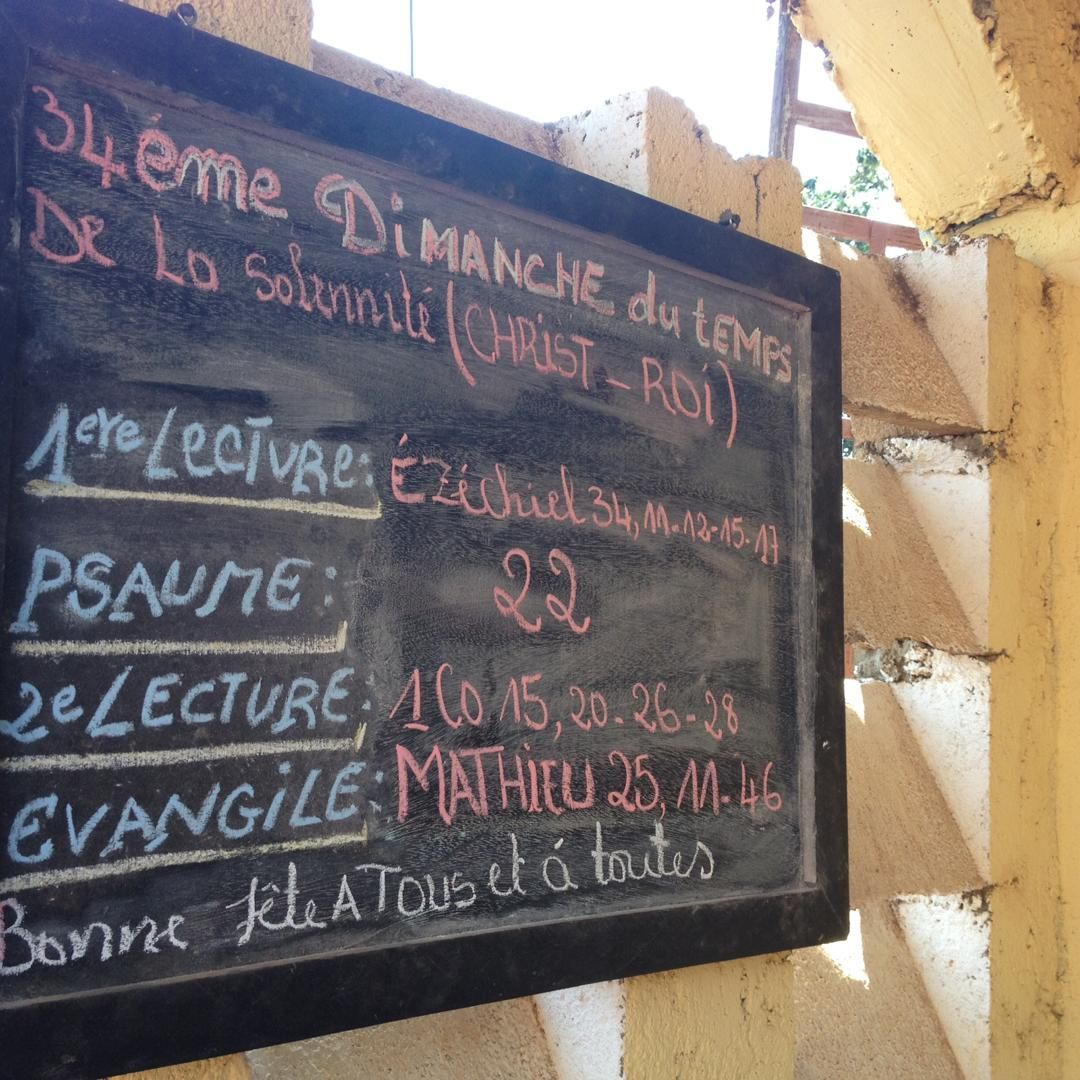 34éme DiMANCHE du tEMPS
De La Solennité (CHRiST - ROi)
1ere LeCTURe: ÉZéchiel 34, 11-12-15-17
PSAUME: 22
2e LECTURE: 1 Co 15, 20-26-28
EVANGiLE: MATHiEU 25, 11-46
Bonne fête A TOUS et á toutes